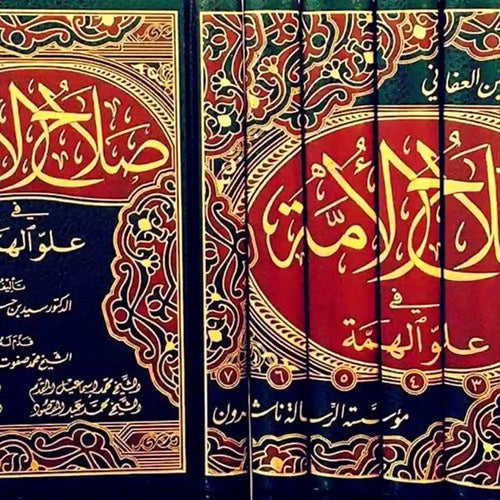 صلاح الأ
في
علو الهمة
تأليف
الدكتور سيد بن حس
قدّم له
الشيخ محمد صفوت
والشيخ محمد إسماعيل المقدم
والشيخ محمد عبد المقصود
ن العفاني
لاح الأمّة
في
علوّ الهمّة
٧ ٦ ٥ ٤ ٣
مؤسسة الرسالة ناشرون